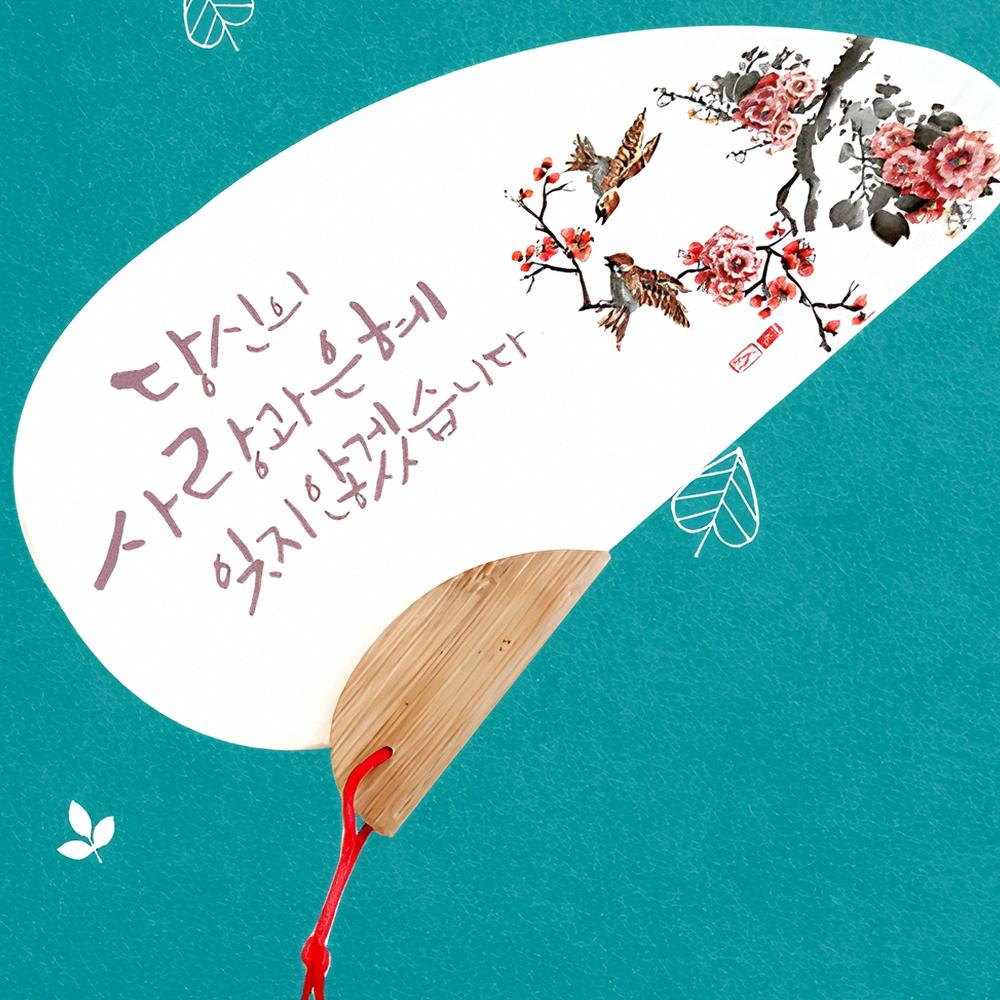 당신의
사랑과 은혜
잊지 않겠습니다